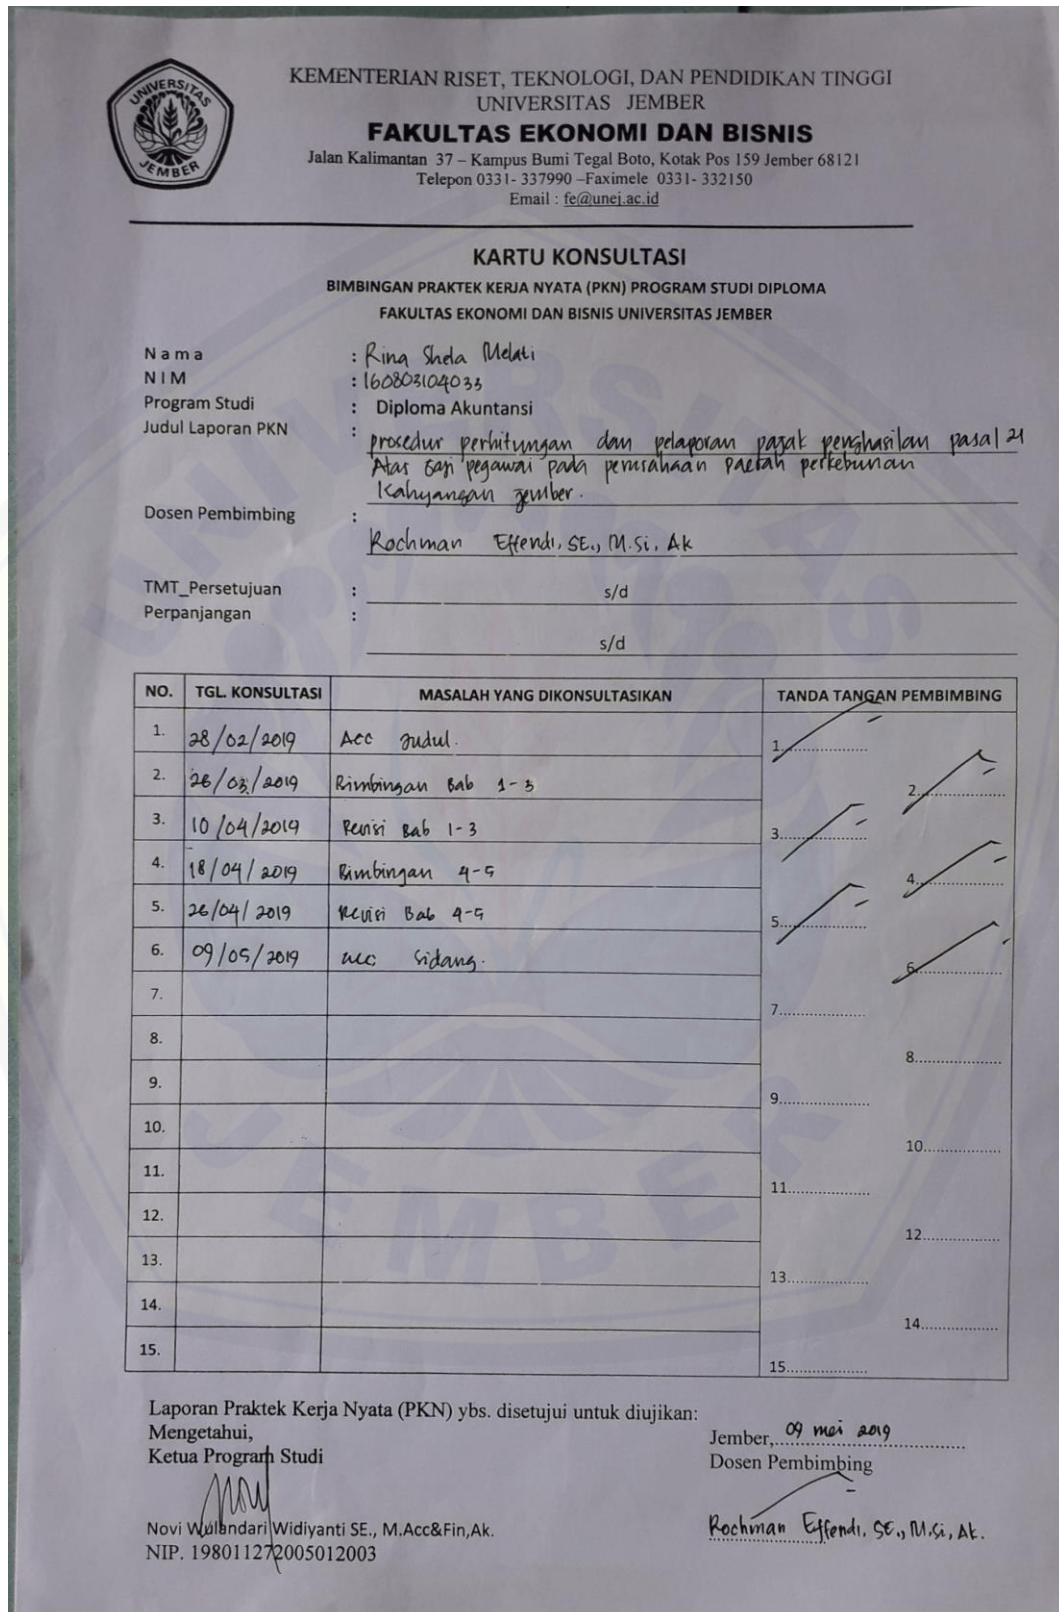 UNIVERSITAS
JEMBER
KEMENTERIAN RISET, TEKNOLOGI, DAN PENDIDIKAN TINGGI
UNIVERSITAS JEMBER
FAKULTAS EKONOMI DAN BISNIS
Jalan Kalimantan 37 – Kampus Bumi Tegal Boto, Kotak Pos 159 Jember 68121
Telepon 0331- 337990 –Faximele 0331- 332150
Email : fe@unej.ac.id
KARTU KONSULTASI
BIMBINGAN PRAKTEK KERJA NYATA (PKN) PROGRAM STUDI DIPLOMA
FAKULTAS EKONOMI DAN BISNIS UNIVERSITAS JEMBER
N a m a : Rina Shela Melati
N I M : 160803104033
Program Studi : Diploma Akuntansi
Judul Laporan PKN : prosedur perhitungan dan pelaporan pajak penghasilan pasal 21
Atas Gaji pegawai pada perusahaan Daerah perkebunan
Kahyangan Jember.
Dosen Pembimbing :
Rochman Effendi, SE., M.Si, Ak
TMT_Persetujuan : s/d
Perpanjangan :
s/d
NO. TGL. KONSULTASI MASALAH YANG DIKONSULTASIKAN TANDA TANGAN PEMBIMBING
1. 28/02/2019 Acc Judul. 1..................
2. 26/03/2019 Bimbingan Bab 1-3 2..................
3. 10/04/2019 Revisi Bab 1-3 3..................
4. 18/04/2019 Bimbingan 4-5 4..................
5. 26/04/2019 Revisi Bab 4-5 5..................
6. 09/05/2019 acc Sidang. 6..................
7. 7..................
8. 8..................
9. 9..................
10. 10..................
11. 11..................
12. 12..................
13. 13..................
14. 14..................
15. 15..................
Laporan Praktek Kerja Nyata (PKN) ybs. disetujui untuk diujikan:
Mengetahui,
Jember, 09 mei 2019
Ketua Program Studi
Dosen Pembimbing
Novi Wulandari Widiyanti SE., M.Acc&Fin,Ak.
Rochman Effendi, SE., M.Si, Ak.
NIP. 198011272005012003
UNIVERSITAS
JEMBER